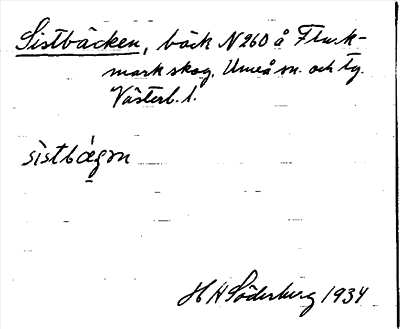 Sistbäcken, bäck N260 å Flurk-
mark skog, Umeå sn. och tg.
Västerb. l.
sistbägən
H H Söderberg 1934